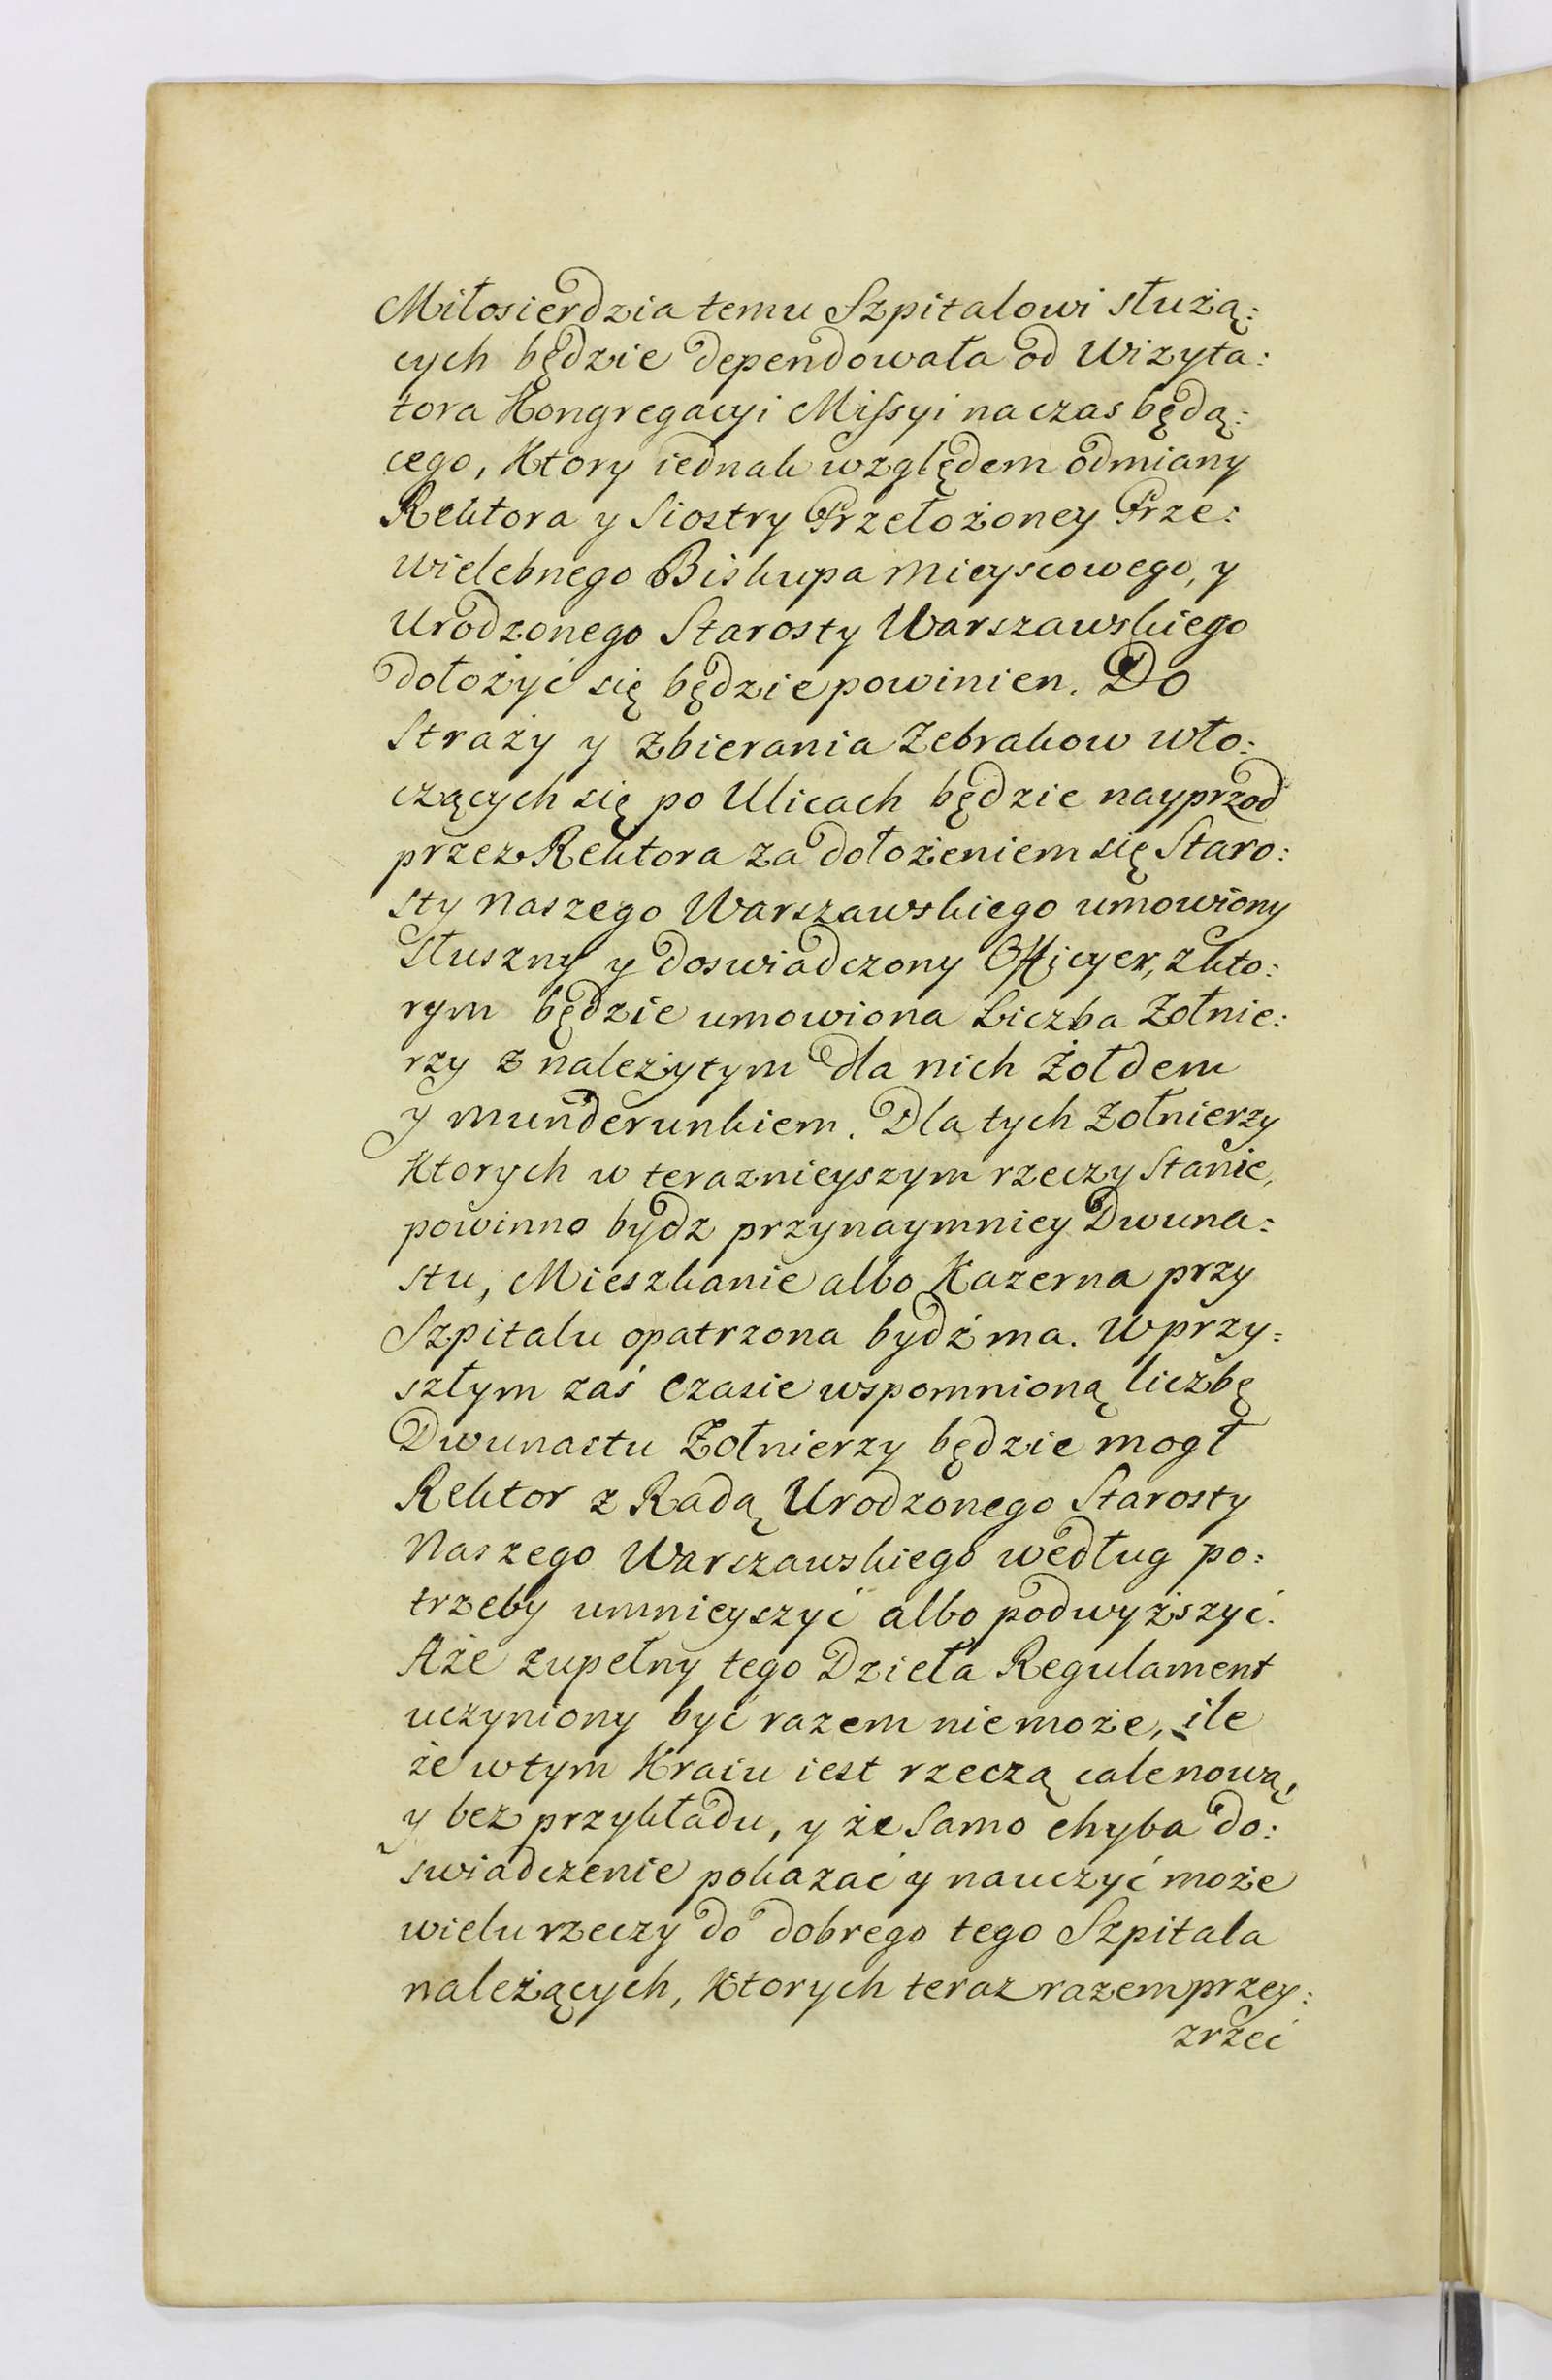 Miłosierdzia temu Szpitalowi służą:
cych będzie dependowała od Wizyta:
tora Kongregacyi Missyi na czas będą:
cego, Ktory iednak względem odmiany
Rektora y Siostry Przełożoney Prze:
wielebnego Biskupa Mieyscowego, y
Urodzonego Starosty Warszawskiego
dołożyć się będzie powinien. Do
Straży y Zbierania Zebrakow wło:
czących się po Ulicach będzie nayprzod
przez Rektora za dołożeniem się Staro:
sty Naszego Warszawskiego umowiony
Słuszny y doswiadczony Officyer, z kto:
rym będzie umowiona Liczba Zołnie:
rzy z należytym dla nich Żołdem
y Munderunkiem. Dla tych Zołnierzy
Ktorych w teraznieyszym rzeczy Stanie,
powinno bydz przynaymniey Dwuna:
stu, Mieszkanie albo Kazerna przy
Szpitalu opatrzona bydź ma. W przy:
szłym zaś Czasie wspomnioną liczbę
Dwunastu Żołnierzy będzie mogł
Rektor z Radą Urodzonego Starosty
Naszego Warszawskiego według po:
trzeby umnieyszyć albo podwyższyć.
Aże zupełny tego Dzieła Regulament
uczyniony być razem nie może, ile
że w tym Kraiu iest rzeczą cale nową,
y bez przykładu, y że Samo chyba do:
swiadczenie pokazać y nauczyć może
wielu rzeczy do dobrego tego Szpitala
należących, Ktorych teraz razem przey:
zrzeć